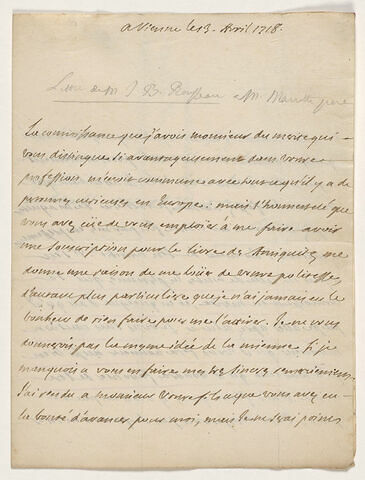 a Vienne le 13. Avril 1718.
Lettre de Mr J. B. Rousseau a Mr. Mariette pere
La connoissance que j'avois monsieur du merite qui
vous distingue si avantageusement dans vostre
profession m'étoit commune avec tout ce qu'il y a de
personnes curieuses en Europe: mais l'honnesteté que
vous avez eüe de vous emploier a me faire avoir
une souscription pour le livre des Antiquitez me
donne une raison de me loüer de vostre politesse,
d'autant plus particuliere que je n'ai jamais eu le
bonheur de rien faire pour me l'attirer. Je ne vous
donnerois pas la mesme idée de la mienne si je
manquois a vous en faire mes tres sinceres remerciemens.
J'ai rendu a monsieur vostre fils ce que vous avez eu
la bonté d'avancer pour moi, mais je ne serai point